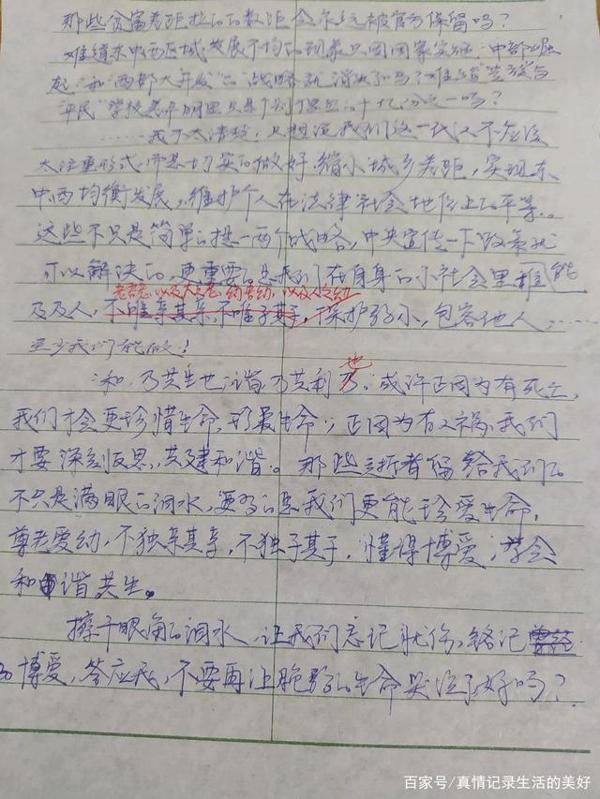 那些贫富差距拉的的数距会永远被官方保留吗?
难道东中西区域发展不均的现象只因国家实施"中部崛
起"和"西部大开发"的战略就消失了吗?难道"贵族"与
平民"学校差
……我不太清楚,只想说我们这一代人不应该
太注重形式,而是切实的做好缩小城乡差距,实现东
中西均衡发展,维护个人在法律社会地位上的平等。
这些不只是简单的提一两个战略,中央宣传一下政策就
可以解决的,更重要的是我们在自身的小社会里推能
老吾老,以及人之老,幼吾幼,以及人之幼
及及人,不唯亲其亲,不唯子其子,保护弱小,包容他人……
至少我们能做!
"和"乃共生也"谐"乃共利也。或许正因为有死亡,
我们才会更珍惜生命,形景生命;正因为有人祸,我们
才要深刻反思,共建和谐。那些逝者留给我们的
不只是满眼的泪水,更多的是我们更能珍爱生命,
尊老爱幼,不独亲其亲,不独子其子,懂得博爱,学会
和谐共生。
擦干眼角的泪水,让我们忘记忧伤,铭记
博爱,答应我,不要再让脆弱的生命哭泣了好吗?
百家号/真情记录生活的美好